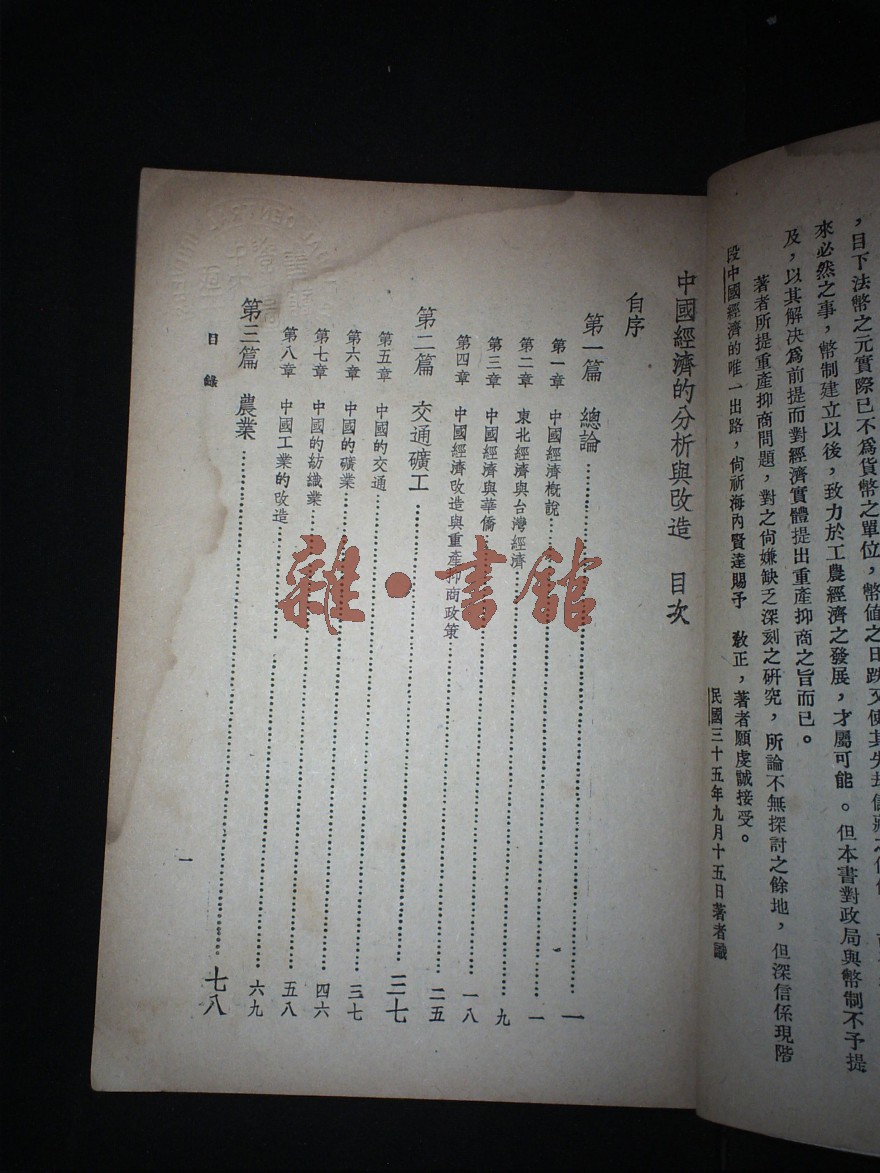 ，目下法幣之元實際已不爲貨幣之單位，幣值之日跌又使其失却信
來必然之事，幣制建立以後，致力於工農經濟之發展，才屬可能。但本書對政局與幣制不予提
及，以其解決爲前提而對經濟實體提出重產抑商之旨而已。
著者所提重產抑商問題，對之尙嫌缺乏深刻之研究，所論不無探討之餘地，但深信係現階
段中國經濟的唯一出路，尙祈海內賢達賜予　敎正，著者願虔誠接受。
民國三十五年九月十五日著者識
中國經濟的分析與改造　目次
自序
第一篇　總論……一
第一章　中國經濟概說……一
第二章　東北經濟與台灣經濟……九
第三章　中國經濟與華僑……一八
第四章　中國經濟改造與重產抑商政策……二五
第二篇　交通礦工……三七
第五章　中國的交通……三七
第六章　中國的礦業……四六
第七章　中國的紡織業……五八
第八章　中國工業的改造……六九
第三篇　農業……七八
目錄
一
雜·書館